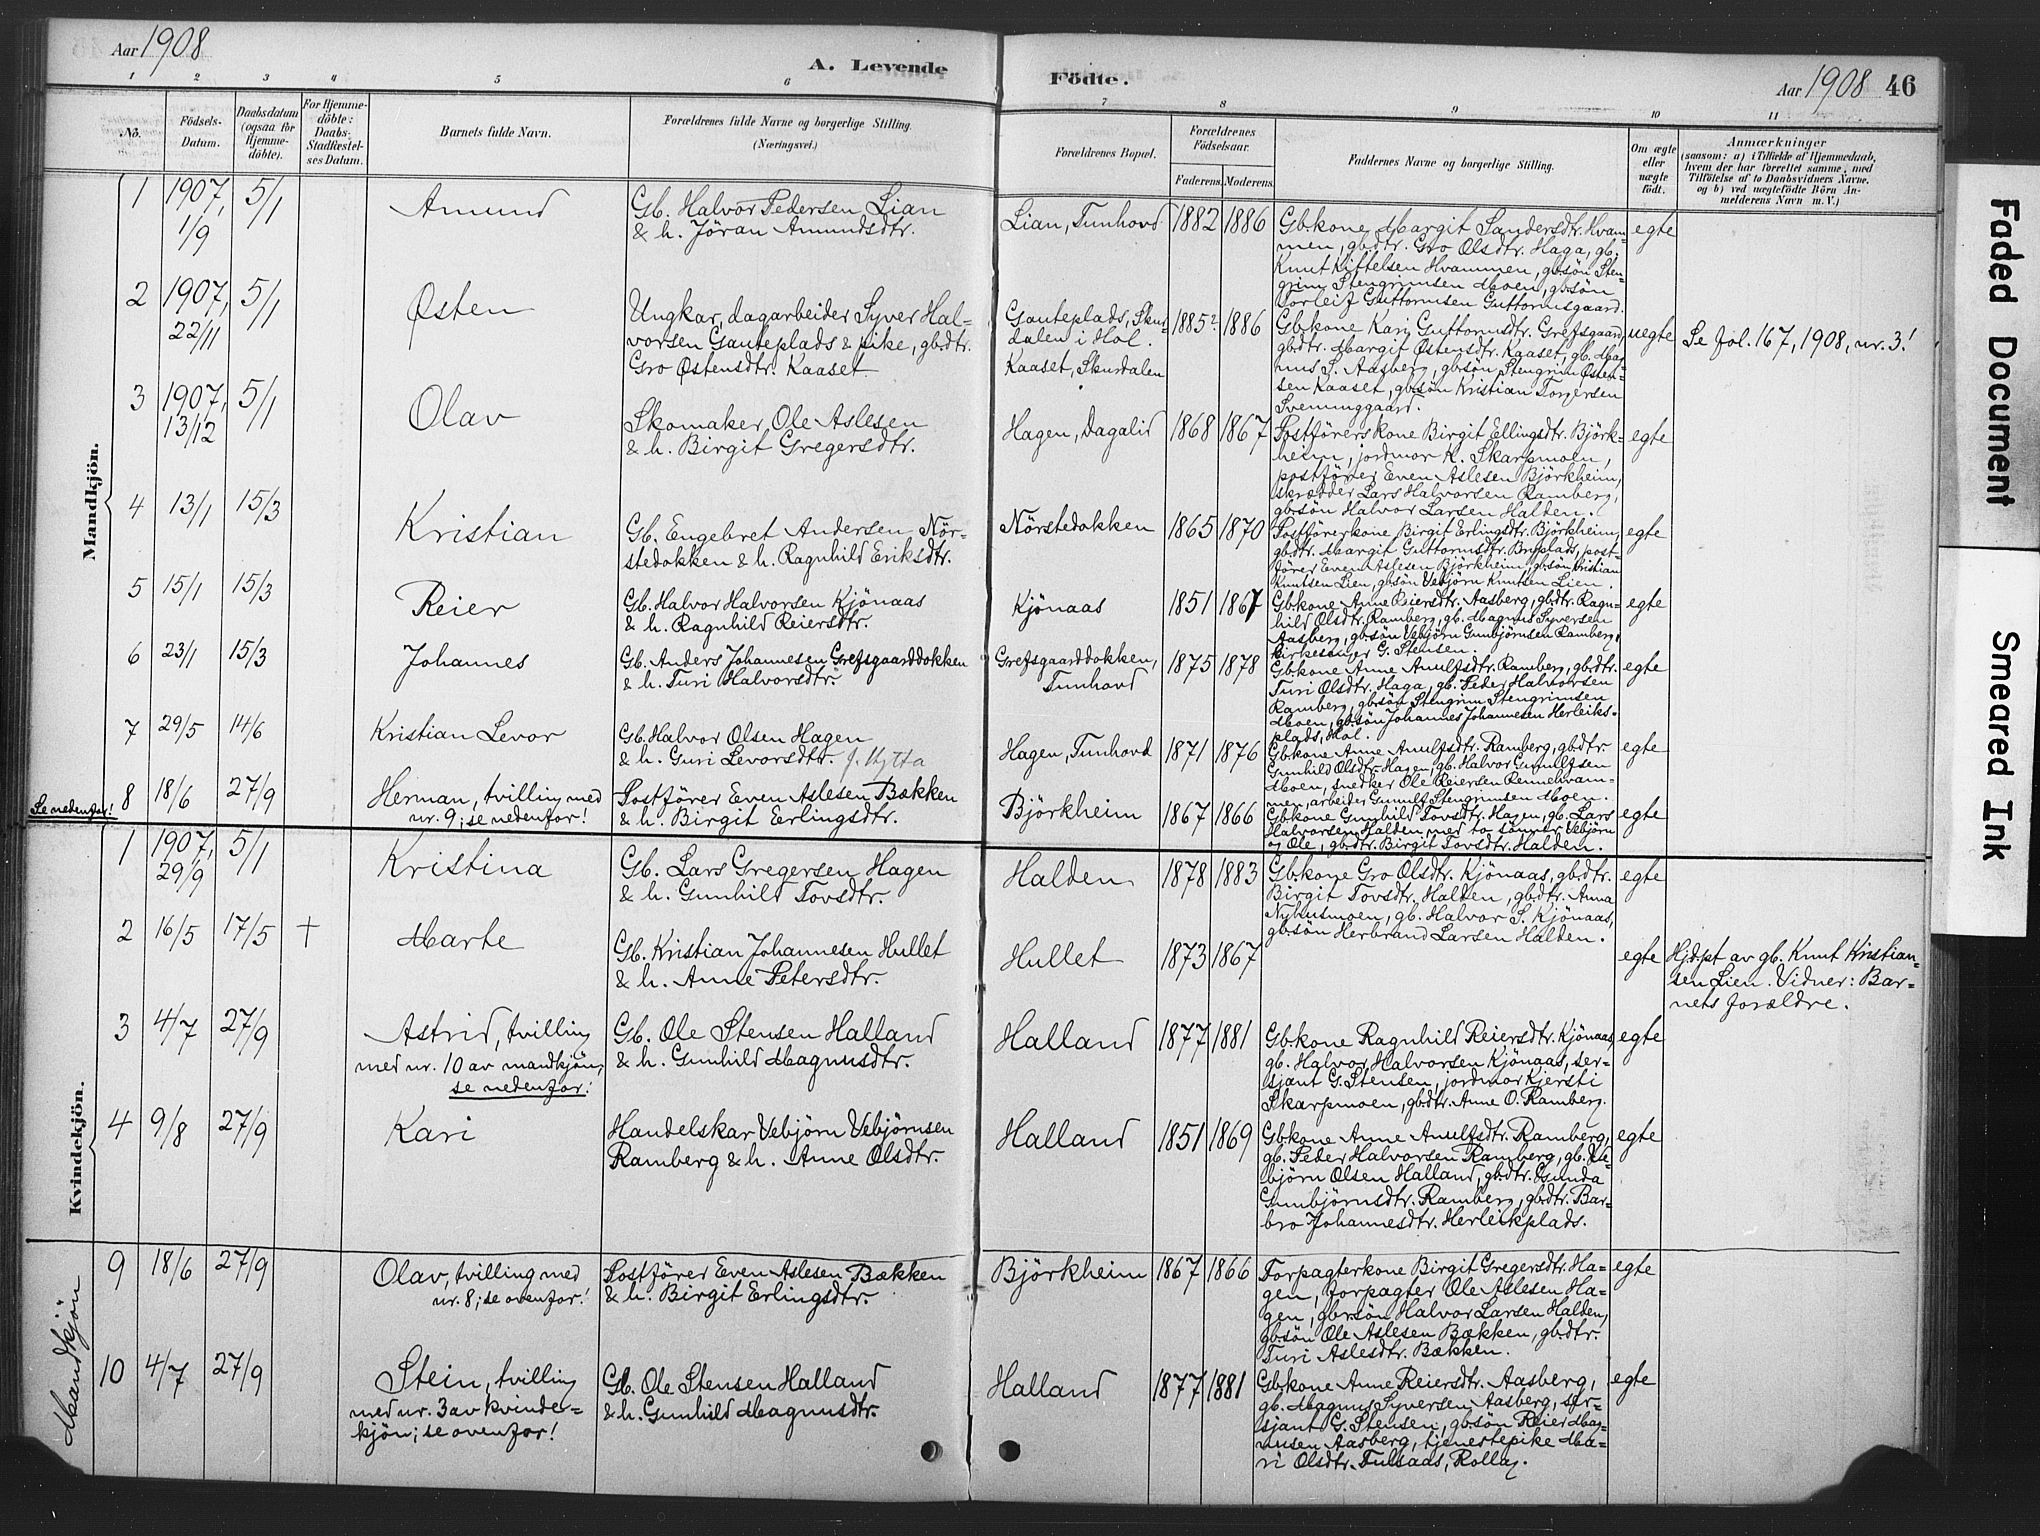 Aar 1908
A. Levende
Födte.
Aar 1908 46
1 2 3 4 5 6 7 8 9 10 11
No.
Födsels-
Datum.
Daabsdatum
(ogsaa for
Hjemme-
döbte).
For Hjemme-
döbte:
Daabs-
Stadfæstel-
ses Datum.
Barnets fulde Navn.
Forældrenes fulde Navne og borgerlige Stilling.
(Næringsvei.)
Forældrenes Bopæl.
Forældrenes
Födselsaar.
Faderens. Moderens.
Faddernes Navne og borgerlige Stilling.
Om ægte
eller
uægte
födt.
Anmærkninger
(saasom: a) i Tilfælde af Hjemmedaab,
hvem der har forrettet samme, med
Tilföielse af to Daabsvidners Navne,
og b) ved uægtefödte Börn An-
melderens Navn m. V.)
Mandkjön.
1 1907, 1/9 5/1 Amund
Gb. Halvor Pedersen Lian
& h. Jöran Amundsdtr.
Lian, Tunhovd 1882 1886
Gbkone Margit Sandersdtr. Hvam-
men, gbdtr. Gro Olsdtr. Haga, gb.
Knut Kiftelsen Hvammen, gbsön Sten-
grim Stengrimsen Moen, gbsön
Torleif Guttormsen Guttormsgaard.
egte
2 1907, 22/11 5/1 Østen
Ungkar, dagarbeider Syver Hal-
vorsen Gauteplads & pike, gbdtr.
Gro Østensdtr. Kaaset
Gauteplads, Skur-
dalen i Hol.
Kaaset, Skurdalen
1885? 1886
Gbkone Kari Guttormsdtr. Grefsgaard,
gbdtr. Margit Østensdtr. Kaaset, gb. Mag-
nus S. Aasberg, gbsön Stengrim Østen-
sen Kaaset, gbsön Kristian Torgersen
Sveninggaard.
uegte
Se fol. 167, 1908, nr. 3!
3 1907, 13/12 5/1 Olav
Skomaker Ole Aslesen
& h. Birgit Gregersdtr.
Hagen, Dagalid 1868 1867
Postförerskone Birgit Ellingsdtr. Björk-
heim, jordmor K. Skarpmoen,
postförer Even Aslesen Björkheim,
skrædder Lars Halvorsen Ramberg,
gbsön Halvor Larsen Halden.
egte
4 13/1 15/3 Kristian
Gb. Engebret Andersen Nör-
stedokken & h. Ragnhild Eriksdtr.
Nörstedokken 1865 1870
Postförerkone Birgit Erlingsdtr. Björkheim,
gbdtr. Margit Guttormsdtr. Bruplads, post-
förer Even Aslesen Björkheim, gbsön Kristian
Knutsen Lien, gbsön Vebjörn Knutsen Lien.
egte
5 15/1 15/3 Reier
Gb. Halvor Halvorsen Kjönaas
& h. Ragnhild Reiersdtr.
Kjönaas 1851 1867
Gbkone Anne Reiersdtr. Aasberg, gbdtr. Ragn-
hild Olsdtr. Ramberg, gb. Magnus Syversen
Aasberg, gbsön Vebjörn Gunbjörnsen Ramberg,
kirkesanger G. Stensen.
egte
6 23/1 15/3 Johannes
Gb. Anders Johannesen Grefsgaarddokken
& h. Turi Halvorsdtr.
Grefsgaarddokken,
Tunhovd
1875 1878
Gbkone Anne Anulfsdtr. Ramberg, gbdtr.
Turi Olsdtr. Haga, gb. Peder Halvorsen
Ramberg, gbsön Stengrim Stengrimsen
Moen, gbsön Johannes Johannesen Herleiks-
plads, Hol.
egte
7 29/5 14/6 Kristian Levor
Gb. Halvor Olsen Hagen
& h. Guri Levorsdtr. f. Mytta
Hagen, Tunhovd 1871 1876
Gbkone Anne Anulfsdtr. Ramberg, gbdtr
Gunhild Olsdtr. Hagen, gb. Halvor Gunulfsen
Moen, snedker Ole Reiersen Rennehvam-
men, arbeider Gunulf Stengrimsen Moen.
egte
Se nedenfor!
8 18/6 27/9 Herman, tvilling med
nr. 9; se nedenfor!
Postförer Even Aslesen Bækken
& h. Birgit Erlingsdtr.
Björkheim 1867 1866
Gbkone Gunhild Tovsdtr. Hagen, gb. Lars
Halvorsen Halden med to sönner Vebjörn
og Ole, gbdtr. Birgit Tovsdtr. Halden.
egte
Kvindekjön.
1 1907, 29/9 5/1 Kristina
Gb. Lars Gregersen Hagen
& h. Gunhild Tovsdtr.
Halden 1878 1883
Gbkone Gro Olsdtr. Kjönaas, gbdtr.
Birgit Tovsdtr. Halden, gbdtr. Anna
Nyhusmoen, gb. Halvor S. Kjönaas,
gbsön Herbrand Larsen Halden.
egte
2 16/5 17/5 + Marte
Gb. Kristian Johannesen Hullet
& h. Anne Petersdtr.
Hullet 1873 1867
egte
Hjdpt av gb. Knut Kristian-
sen Lien. Vidner: Bar-
nets forældre.
3 4/7 27/9 Astrid, tvilling
med nr. 10 av mandkjön,
se nedenfor!
Gb. Ole Stensen Halland
& h. Gunhild Magnusdtr.
Halland 1877 1881
Gbkone Ragnhild Reiersdtr. Kjönaas
gb. Halvor Halvorsen Kjönaas, ser-
sjant G. Stensen, jordmor Kjersti
Skarpmoen, gbdtr. Anne O. Ramberg.
egte
4 9/8 27/9 Kari
Handelskar Vebjörn Vebjörnsen
Ramberg & h. Anne Olsdtr.
Halland 1851 1869
Gbkone Anne Anulfsdtr. Ramberg,
gb. Peder Halvorsen Ramberg, gb. Ve-
björn Olsen Halland, gbdtr. Gunda
Gunbjörnsdtr. Ramberg, gbdtr. Bar-
bro Johannesdtr. Herleikplads.
egte
Mandkjön
9 18/6 27/9 Olav, tvilling med
nr. 8; se ovenfor!
Postförer Even Aslesen Bækken
& h. Birgit Erlingsdtr.
Björkheim 1867 1866
Forpagterkone Birgit Gregersdtr. Ha-
gen, forpagter Ole Aslesen Ha-
gen, gbrsön Halvor Larsen Halden,
gbsön Ole Aslesen Bækken, gbdtr.
Turi Aslesdtr. Bækken.
egte
10 4/7 27/9 Stein, tvilling
med nr. 3 av kvinde-
kjön; se ovenfor!
Gb. Ole Stensen Halland
& h. Gunhild Magnusdtr.
Halland 1877 1881
Gbkone Anne Reiersdtr. Aasberg,
gb. Magnus Syversen Aasberg, ser-
sjant G. Stensen, gbsön Reier Mag-
nusen Aasberg, tjenestepike Ma-
ri Olsdtr. Tulsaas, Rollag.
egte
Faded Document
Smeared Ink